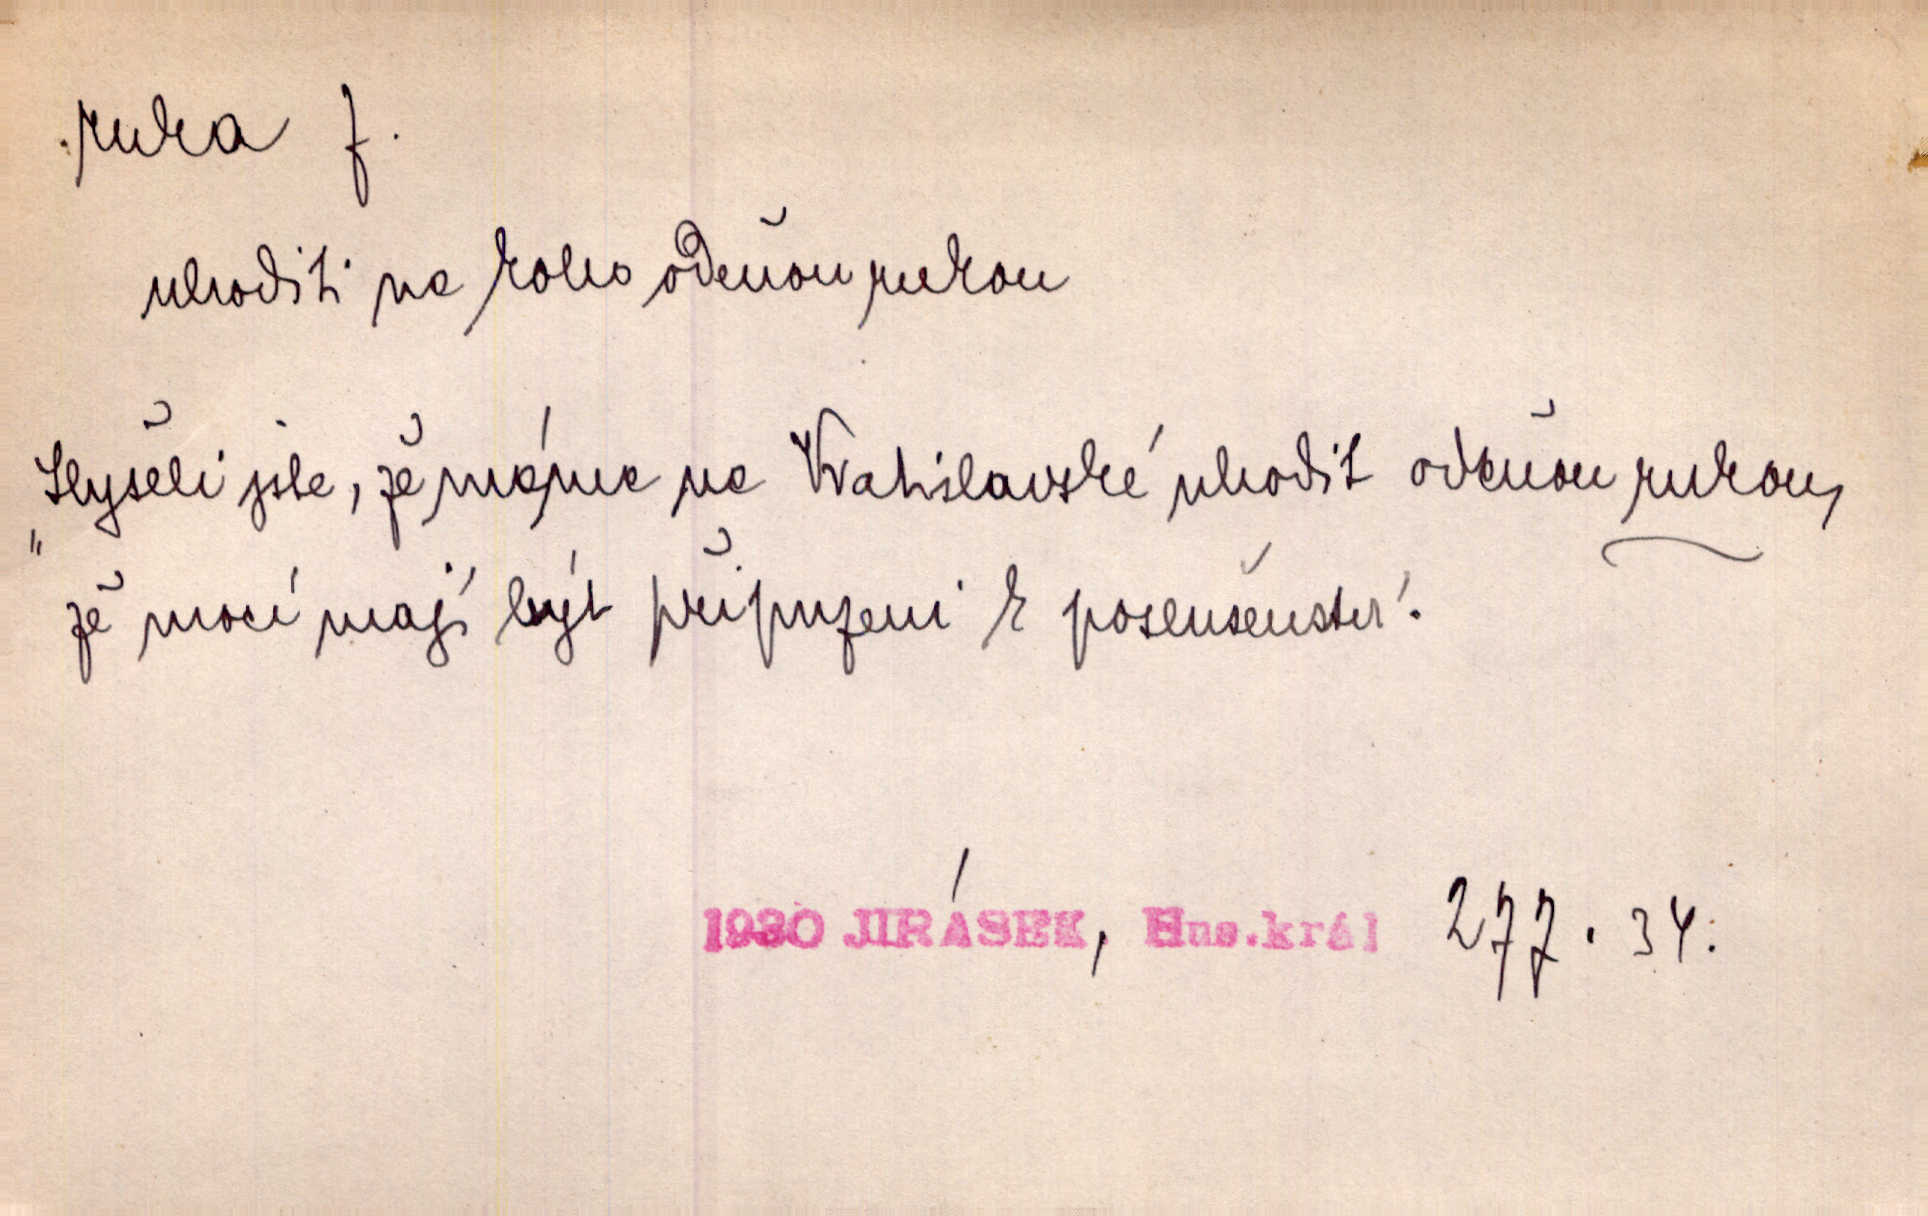 ruka f.
uhoditi na koho oděnou rukou
„Slyšeli jste, že máme na Vratislavské uhodit oděnou rukou,
že mocí mají být připuzeni k poslušenství.
1930 JIRÁSEK, Hus.král 277.34: